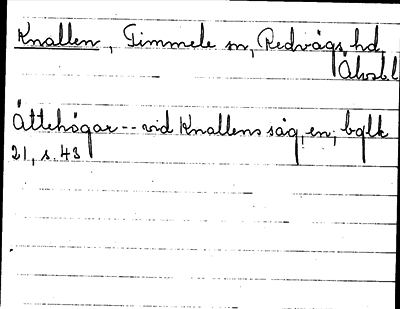 Knallen, Timmele sn, Redvägs hd
Älvsbl
Ättehögar -- vid Knallens såg, en, bglk
21, s. 43